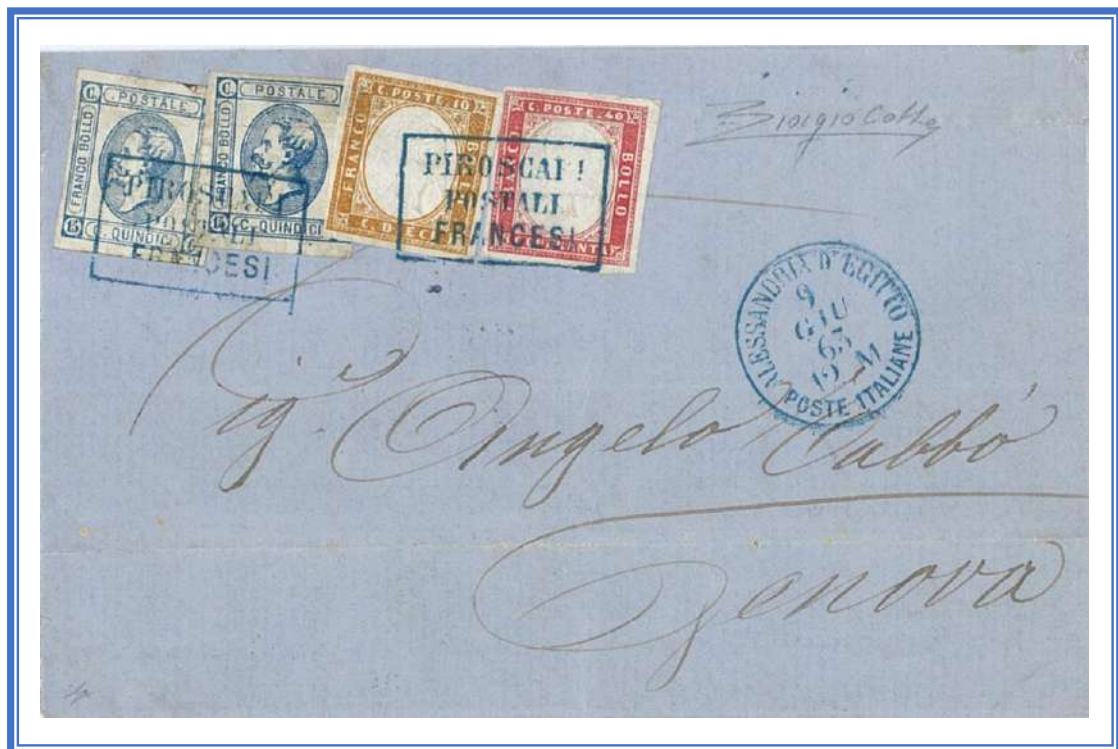 C. POSTALE
FRANCO BOLLO
15 C. QUINDICI
C. POSTALE
FRANCO BOLLO
15 C. QUINDICI
C. POSTE. 10
FRANCO
C. DIECI
C. POSTE. 40
BOLLO
PIROSCAFI
POSTALI
FRANCESI
PIROSCAFI
POSTALI
FRANCESI
Giorgio Colla
ALESSANDRIA D'EGITTO
9
GIU
63
12 M
POSTE ITALIANE
Sig. Angelo Cabbò
Genova